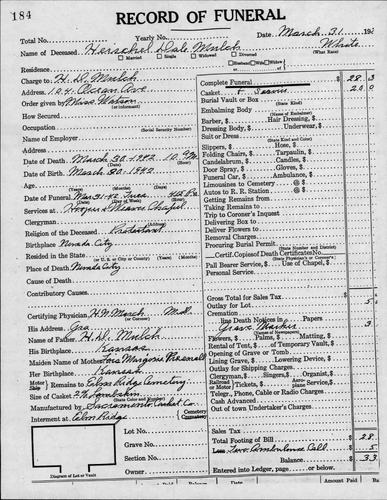 184
RECORD OF FUNERAL
Total No. Yearly No. Date March 31 192
Name of Deceased Herschel Dale Mulch White
Married Single Widowed Divorced Husband Wife Widow (What Race)
Residence
Charge to H. D. Mulch
Address 124 Ocean Ave
Order given by Miss Watson
(or informant)
How Secured
Occupation
(Social Security Number)
Name of Employer
Address
Date of Death March 30-1942 10 P.M.
Date of Birth March 30-1942
Age
(Years) (Months) (Days)
Date of Funeral Mar 31-42 Tues
(Date) (Day of Week) (Hour)
Services at Chapel
Clergyman
Religion of the Deceased Protestant
Birthplace Nevada City
Resided in the State
(or U. S. or City or County) (Years) (Months)
Place of Death Nevada City
Cause of Death
Contributory Causes
Certifying Physician H. N. March M.D.
His Address
Name of Father H. D. Mulch
His Birthplace Kansas
Maiden Name of Mother Lois Margorie
Her Birthplace Kansas
Motor Ship Remains to Elm Ridge Cemetery
Size of Casket
(State Color and Number)
Manufactured by Sacramento Casket Co.
Interment at Elm Ridge Cemetery Crematory
Lot No.
Grave No.
Section No.
Owner
Diagram of Lot or Vault
Complete Funeral $ 28 3
Casket + Service 25 0
Burial Vault or Box
(State Kind)
Embalming Body
(Name of Embalmer)
Barber, $ Hair Dressing, $
Dressing Body, $ Underwear, $
Suit or Dress
(State Kind and Color)
Slippers, $ Hose, $
Folding Chairs, $ Tarpaulin, $
Candelabrum, $ Candles, $
Door Spray, $ Gloves, $
Funeral Car, $ Ambulance, $
Limousines to Cemetery @ $
Autos to R. R. Station @ $
Getting Remains from
Taking Remains to
Trip to Coroner's Inquest
Delivering Box to
Deliver Flowers to
Removal Charges
Procuring Burial Permit
(State Number and District)
Certif. Copies of Death Certificates No.
(State Physician's or Coroner's)
Pall Bearer Service, $ Use of Chapel, $
Personal Service
Gross Total for Sales Tax $
Outlay for Lot
Cremation
line Death Notices in Papers
(Names of Newspapers)
Grave Marker
Flowers, $ Palms, $ Matting, $
Rental of Tent, $ of Temporary Vault, $
Opening of Grave or Tomb
Lining Grave, $ Lowering Device, $
Outlay for Shipping Charges
Clergyman, $ Singers, $ Organist, $
Railroad Tickets, $ Aeroplane Service, $
Telegr., Phone, Cable or Radio Charges
Cash Advanced
Out of town Undertaker's Charges
Sales Tax
Total Footing of Bill $ 28
Less Two Ambulance Call 5
Balance $ 33
Entered into Ledger, page or below.
Amount Paid